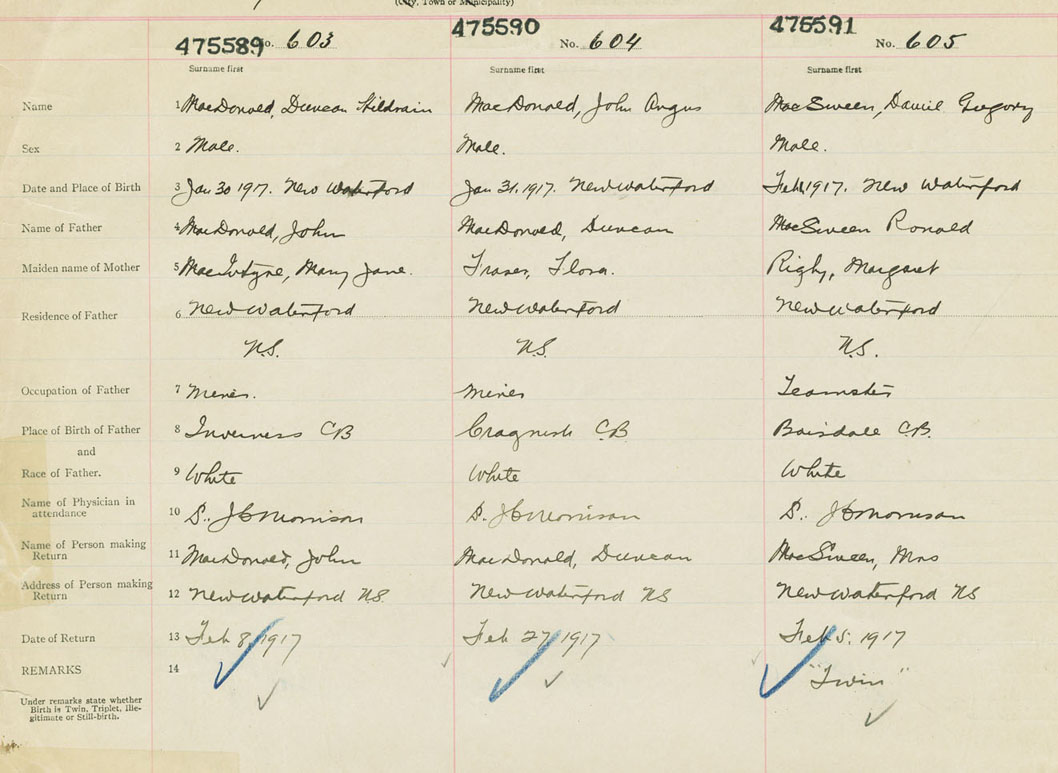 (City, Town or Municipality)
475589 No. 603 475590 No. 604 475591 No. 605
Surname first Surname first Surname first
Name 1 MacDonald, Duncan MacDonald, John Angus MacSween, Daniel Gregory
Sex 2 Male. Male. Male.
Date and Place of Birth 3 Jan 30 1917. New Waterford Jan 31, 1917. New Waterford Feb 1, 1917. New Waterford
Name of Father 4 MacDonald, John MacDonald, Duncan MacSween Ronald
Maiden name of Mother 5 MacIntyre, Mary Jane. Fraser, Flora. Rigby, Margaret
Residence of Father 6 New Waterford New Waterford New Waterford
N.S. N.S. N.S.
Occupation of Father 7 Miner. Miner Teamster
Place of Birth of Father 8 Inverness CB Craignish C.B Boisdale C.B.
and
Race of Father. 9 White White White
Name of Physician in
attendance 10 D. J C Morrison D. J C Morrison D. J C Morrison
Name of Person making
Return 11 MacDonald, John MacDonald, Duncan MacSween, Mrs
Address of Person making
Return 12 New Waterford N.S. New Waterford NS New Waterford NS
Date of Return 13 Feb 8, 1917 Feb 27, 1917 Feb 5, 1917
REMARKS 14 "Twin"
Under remarks state whether
Birth is Twin, Triplet, Ille-
gitimate or Still-birth.